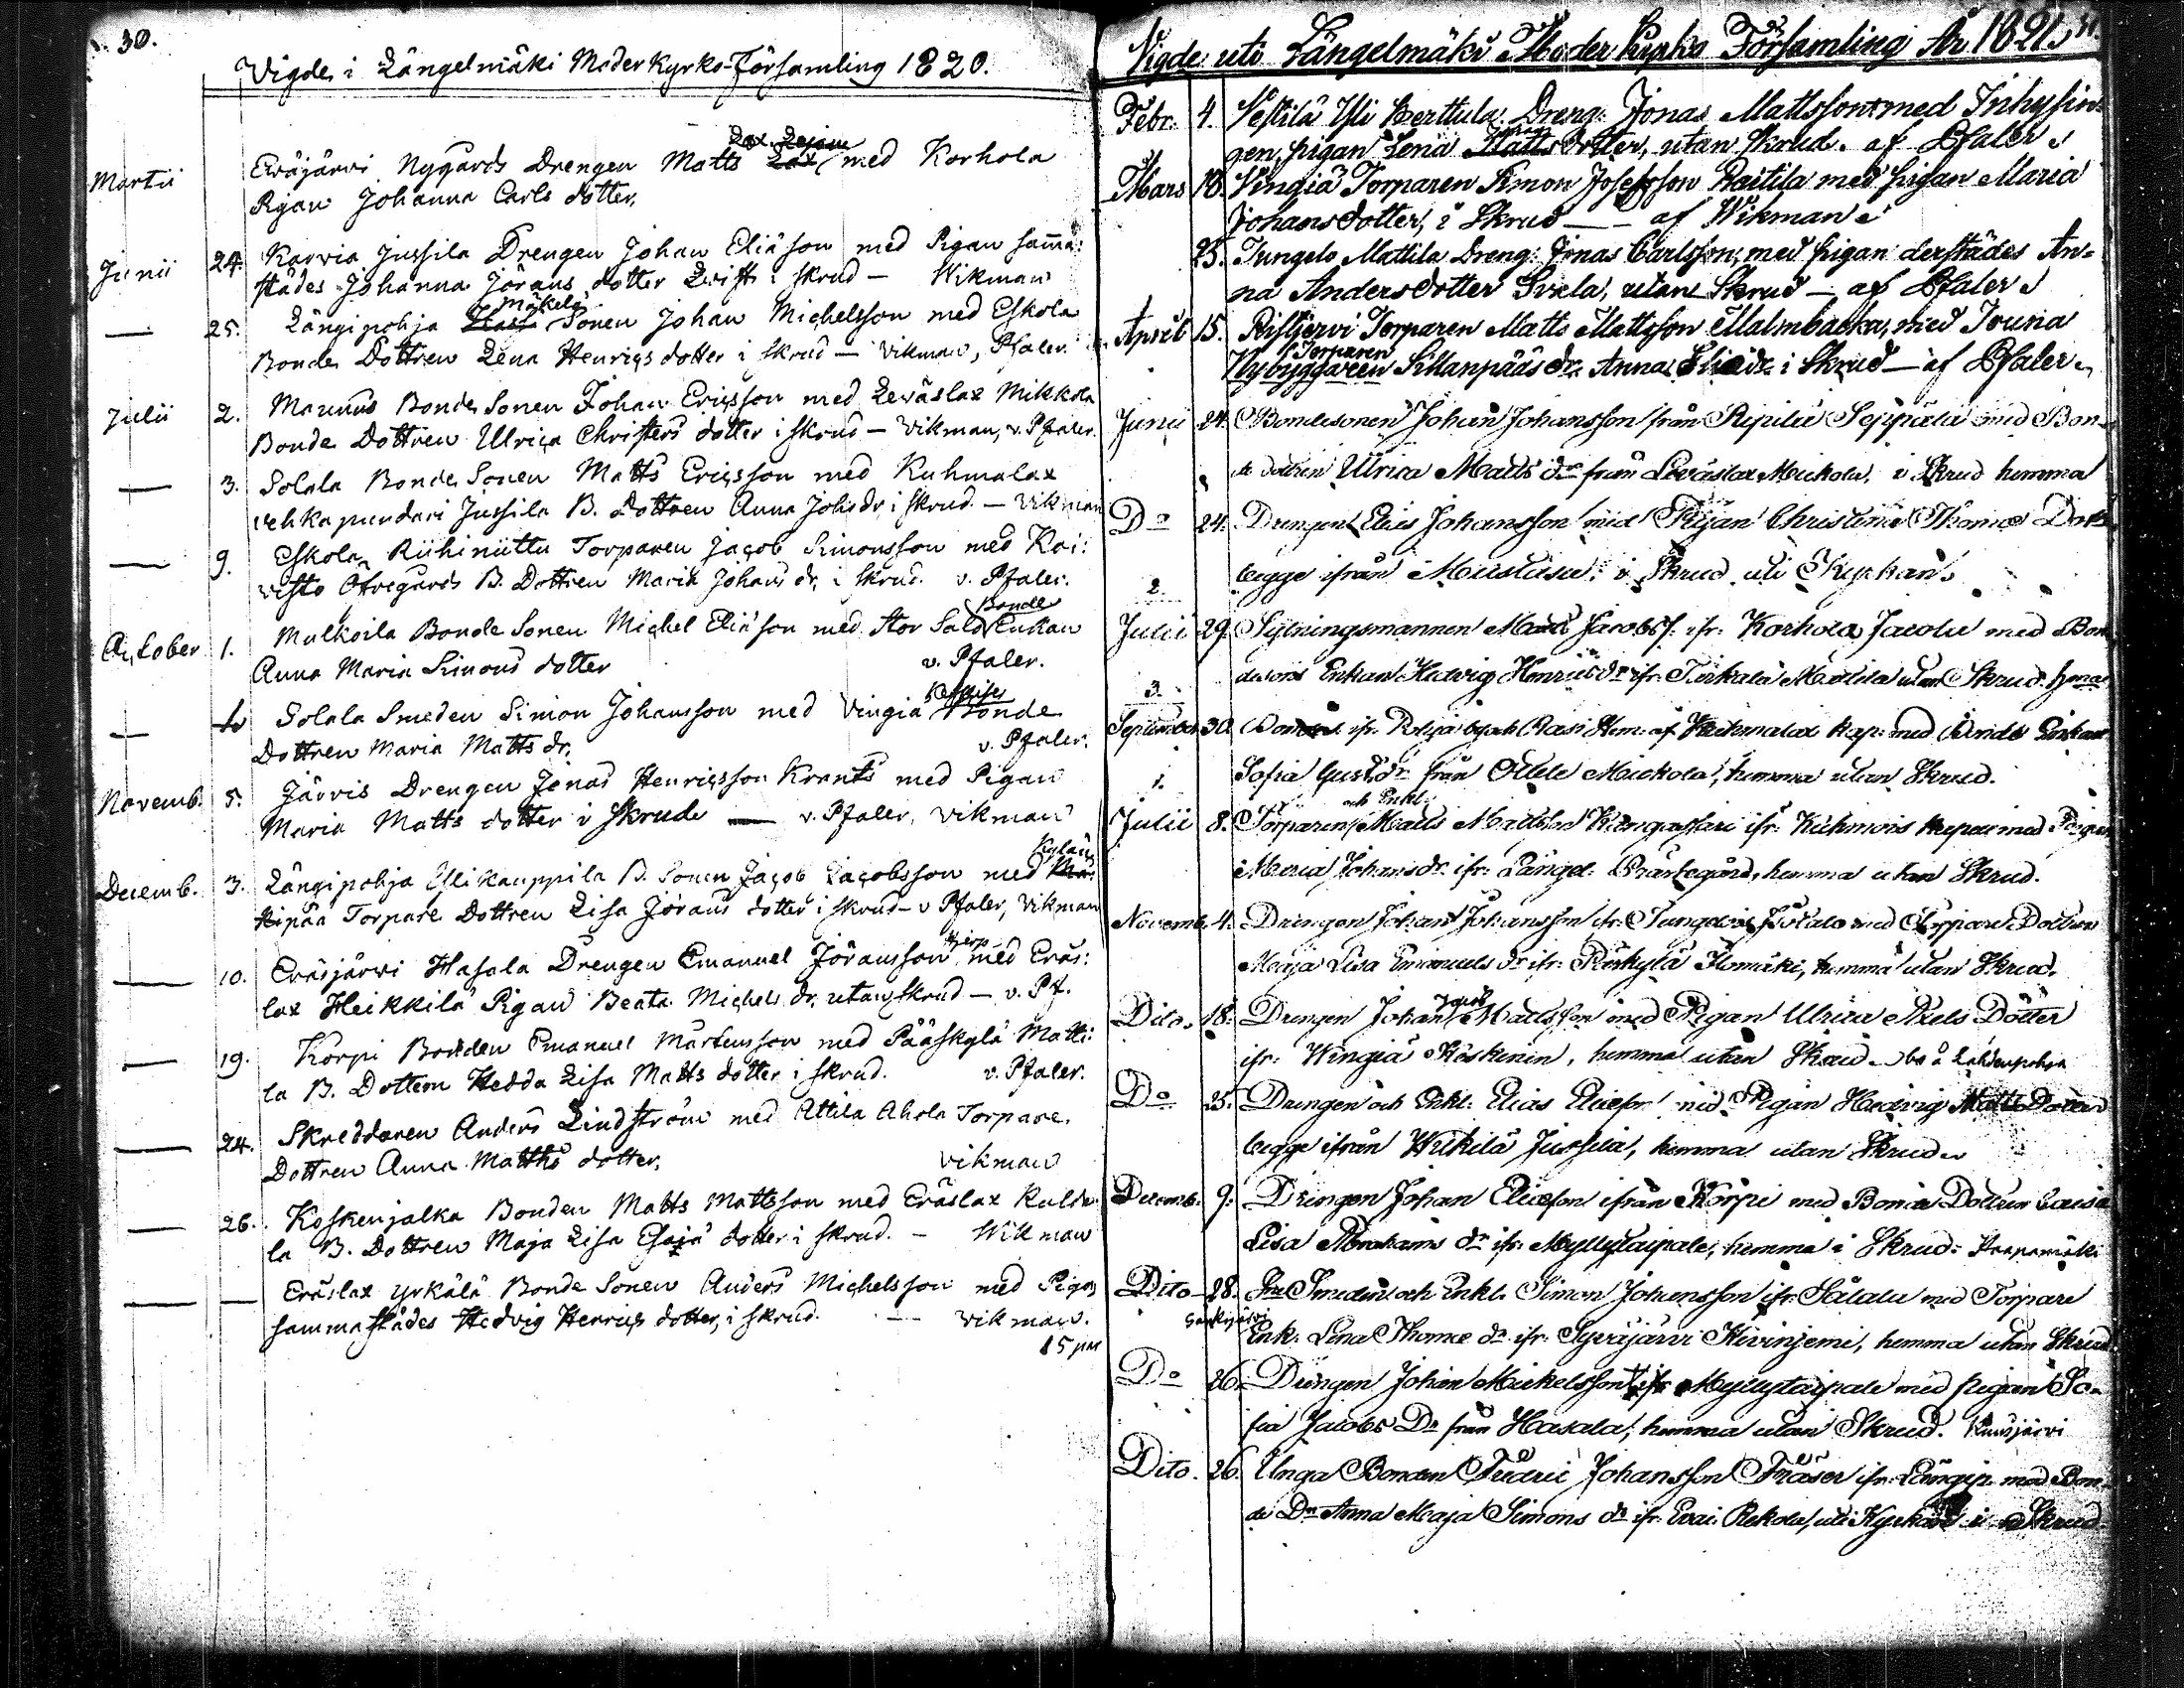 30.
Vigde i Längelmäki Moder Kyrko-Församling 1820.
Lax. Lejon
Martii Eräjärvi Nygårds Drengen Matts Lax med Korhola
Pigan Johanna Carls dotter.
Junii 24. Karvia Jussila Drengen Johan Eliæson med Pigan samma-
städes Johanna Jörans dotter Qvist i skrud — Wikman
Mäkelä
— 25. Längipohja Sonen Johan Michelsson med Eskola
Bonde Dottren Lena Henrics dotter i skrud — Vikman, Pfaler.
Julii 2. Maunus Bonde Sonen Johan Ericsson med Leväslax Mikkola
Bonde Dottren Ulrica Christers dotter i skrud — Vikman, v. Pfaler.
— 3. Solala Bonde Sonen Matts Ericsson med Kuhmalax
Vehkapundari Jussila B. Dottren Anna Johs dr. i skrud. — Vikman
— 9. Eskola Riihiniittu Torparen Jacob Simonsson med Koi:
visto Öfvegårds B. Dottren Maria Johans dr. i skrud. v. Pfaler.
Bonde
October 1. Mulkoila Bonde Sonen Michel Eliæson med Stor Salo Enkan
Anna Maria Simons dotter v. Pfaler.
— Solala Smeden Simon Johansson med Vingiä Bonde
Dottren Maria Matts dr. v. Pfaler.
Novemb. 5. Järvis Drengen Jonas Henricsson Krants med Pigan
Maria Matts dotter i Skrud — v. Pfaler, Vikman
Kylän
Decemb. 3. Längipohja Yllikauppila B. Sonen Jacob Jacobsson med
tipää Torpare Dottren Lisa Jörans dotter i skrud — v Pfaler, Vikman
— 10. Eräjärvi Hasala Drengen Emanuel Jöransson med Eräs:
lax Heikkilä Pigan Beata Michels dr. utan skrud — v. Pf.
— 19. Korpi Bonden Emanuel Mårtensson med Pääskylä Matti:
la B. Dottern Hedda Lisa Matts dotter i skrud. v. Pfaler.
— 24. Skreddaren Anders Lindström med Attila Ahola Torpare
Dottren Anna Matths dotter. Vikman
— 26. Koskenjalka Bonden Matts Mattsson med Eräslax Rulde
la B. Dottren Maja Lisa Esaiæ dotter i skrud. — Wikman
— — Eräslax Yrkälä Bonde Sonen Anders Michelsson med Pigan
sammastädes Hedvig Henrics dotter, i skrud. — Vikman.
15 par
31
Vigde uti Längelmäki Moder Kyrko Församling År 1821.
Febr. 4. Vestilä Yli Perttula Dreng: Jonas Mattsson med Inhysin-
gen, pigan Lena Dotter, utan Skrud. af Pfaler
Mars 18. Vingiä Torparen Simon Josefsson Raitila med Pigan Maria
Johans dotter, i Skrud — af Wikman
25. Jungelo Mattila Dreng: Jonas Carlsson, med pigan derstädes An=
na Anders dotter Svala, utan Skrud — af Pfaler
April 15. Ristjervi Torparen Matts Mattsson Malmbacka, med Iouna
Torparen
Nybyggaren Sillanpääs dr. Anna Eliæ dr. i Skrud — af Pfaler
Junii 24. Bondesonen Johan Johansson från Ripilä Seppälä med Bon-
de dottren Ulrica Matts dr från Leväslax Mickola, i Skrud hemma
Do 24. Drengen Elias Johansson med Pigan Christina Thomæ Dotter
begge ifrån i Skrud uti Kyrkan
2.
Julii 29. Sytningsmannen Matts Jacobs. ifr. Korhola Jacola med Bon
desons Enkan Hedvig Henrics dr ifr. Mattila utan Skrud hema
3.
September 30. ifr. Pohja af Kuhmalax Kap. med Bonde Enkan
1. Sofia Gust. dr från Mickola, hemma utan Skrud.
och Enkl.
Julii 8. Torparen Matts Mattsson Kangassari ifr. Kuhmois Kapell med Pigan
Maria Johans dr. ifr. Längel. Prästegård, hemma utan Skrud.
Novemb. 4. Drengen Johan Johansson ifr. med Torpare Dottren
Maja Lisa Emanuels dr ifr. Pääskylä Ilomäki, hemma utan Skrud.
Jacob
Dito. 18. Drengen Johan Mattsson med Pigan Ulrica Axels Dotter
ifr. Wingiä Höskenin, hemma utan Skrud. bo å Lahdenpohja
Do 25. Drengen och Enkl. Elias Eliæson med Pigan Hedvig Matts Dotter
begge ifrån Wihkilä Jussila, hemma utan Skrud.
Decemb. 9. Drengen Johan Eliæson ifrån Korpi med Bonde Dottren Caisa
Lisa Abrahams dr ifr. Myllytaipale, hemma i Skrud. Haapamäki
Dito 28. Smeden och Enkl. Simon Johansson ifr. Sålala med Torpare
Särkijärvi
Enk. Lena Thomæ dr. ifr. Kivinjemi, hemma utan Skrud
Do 26. Drengen Johan Mickelsson ifr Myllytaipale med pigan So-
fia Jacobs Dr från Hasala, hemma utan Skrud. Kuusjärvi
Dito. 26. Unga Bonden Fredric Johansson Fraser ifr. Längip. med Bon
de Dr Anna Maja Simons dr ifr. Erai. Rekola, uti Kyrkan i Skrud.